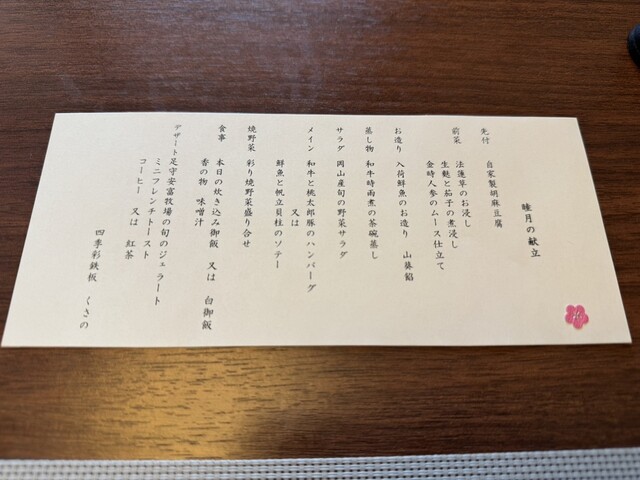 睦月の献立
先付　自家製胡麻豆腐
前菜　法蓮草のお浸し
生麩と茄子の煮浸し
金時人参のムース仕立て
お造り　入荷鮮魚のお造り　山葵餡
蒸し物　和牛時雨煮の茶碗蒸し
サラダ　岡山産旬の野菜サラダ
メイン　和牛と桃太郎豚のハンバーグ
又は
鮮魚と帆立貝柱のソテー
焼野菜　彩り焼野菜盛り合せ
食事　本日の炊き込み御飯　又は　白御飯
香の物　味噌汁
デザート　足守安富牧場の旬のジェラート
ミニフレンチトースト
コーヒー　又は　紅茶
四季彩鉄板　くさの